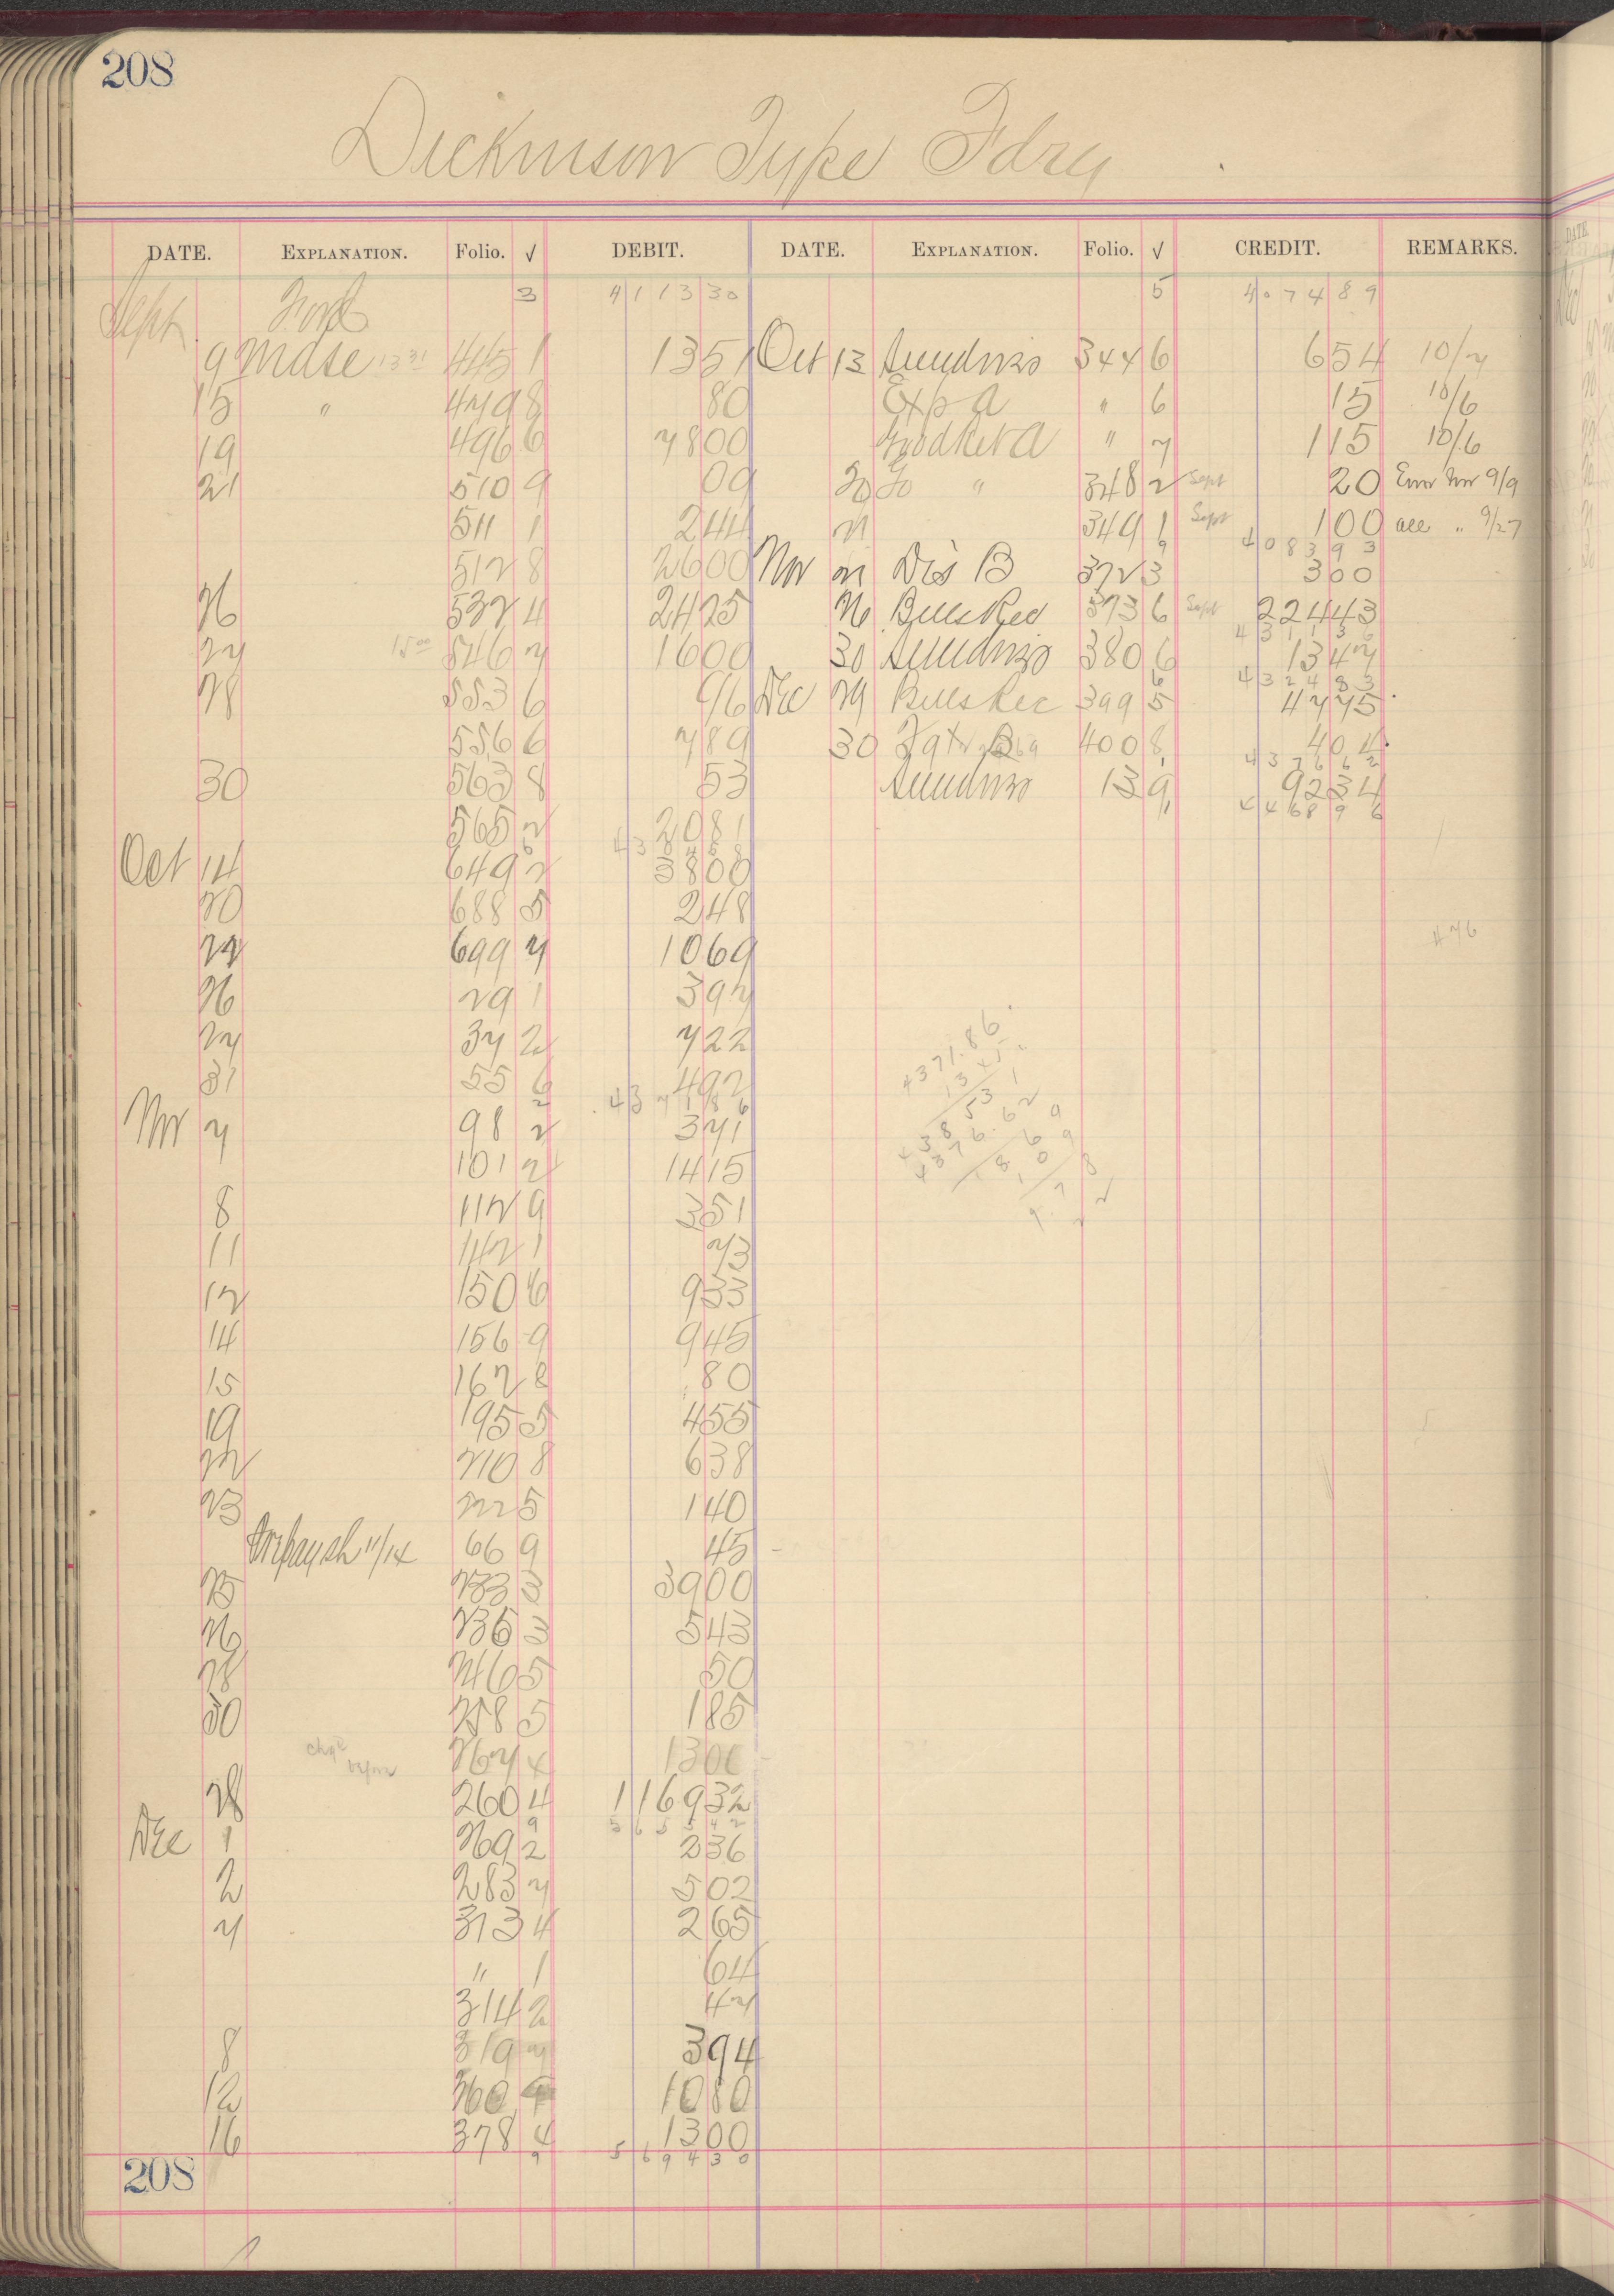 208
Dickinson Type Fdry
DATE. EXPLANATION. Folio. √ DEBIT. DATE. EXPLANATION. Folio. √ CREDIT. REMARKS.
Sept Ford 3 4113 30 5 4074 89
9 Mdse 1331 445 1 13 51 Oct 13 Sundries 344 6 6 54 10/7
15 " 479 8 80 Exp a " 6 15 10/6
19 496 6 78 00 " 7 1 15 10/6
21 510 9 09 20 Fo " 348 2 Sept 20 Error Inv 9/9
511 1 2 44 21 349 1 Sept 1 00 all " 9/27
4083 93
512 8 26 00 Nov 21 Dis B 372 3 3 00
26 532 4 24 25 26 Bills Rec 373 6 Sept 224 43
4311 36
27 15 00 546 7 16 00 30 Sundries 380 6 13 47
4324 83
28 553 6 96 Dec 29 Bills Rec 399 5 47 75
556 6 7 89 30 400 8 4 04
4376 62
30 563 8 53 Sundries 13 9 92 34
4468 96
565 2 20 81
43
Oct 14 649 2 38 00
20 688 5 2 48
24 699 7 10 69
476
26 29 1 3 97
27 37 2 7 22
31 55 6 4 92
4371 86
Nov 7 98 2 3 71
101 2 14 15
8 112 9 3 51
11 142 1 73
12 150 6 9 33
14 156 9 9 45
15 162 8 80
19 195 5 4 55
22 210 8 6 38
23 222 5 1 40
11/14 66 9 45
25 233 3 39 00
26 236 3 5 43
28 246 5 50
30 258 5 1 85
chgd before 267 4 13 00
28 260 4 1169 32
5655 42
Dec 1 269 2 2 36
2 283 7 5 02
7 313 4 2 65
" 1 64
314 2 47
8 319 7 3 94
12 360 10 80
16 378 4 13 00
9 5694 30
4371.86
13 45
4385 31
4376.62
8 69
1 09
9.78
208